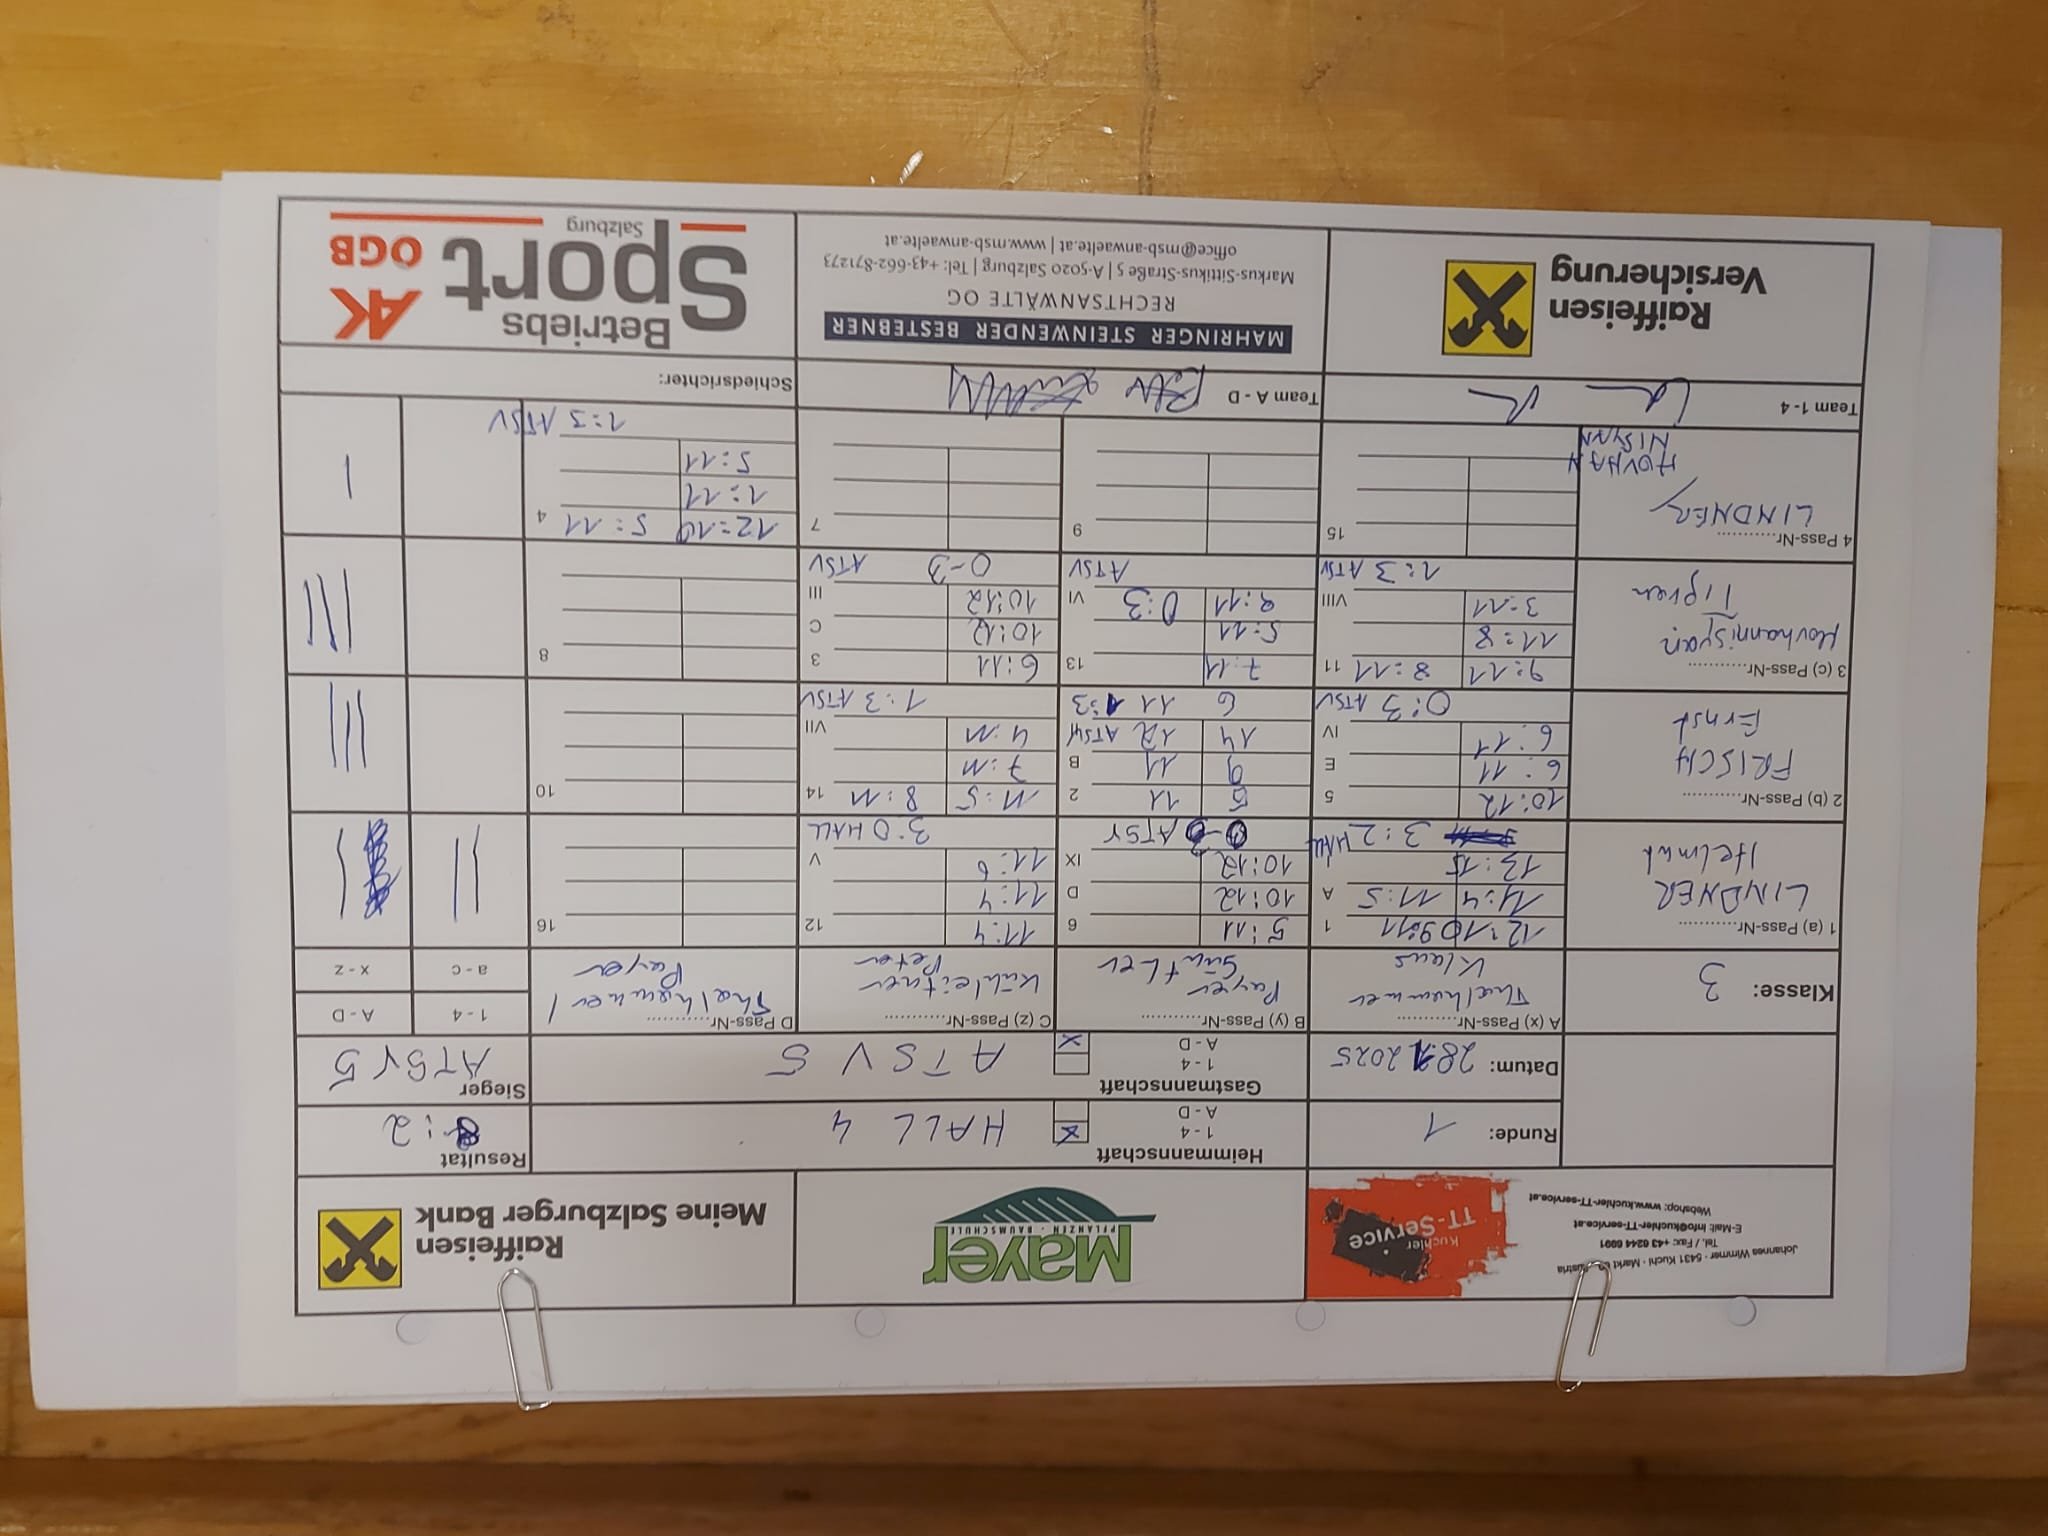 Johannes Wimmer · 5431 Kuchl · Markt
Tel. / Fax: +43 6244 6991
E-Mail: info@kuchler-TT-service.at
Webshop: www.kuchler-TT-service.at
Kuchler
TT-Service
Mayer
PFLANZEN · BAUMSCHULE
Raiffeisen
Meine Salzburger Bank
Runde: 1
Heimmannschaft
1 - 4 x
A - D
HALL 4
Resultat
8:2
Datum: 28.1.2025
Gastmannschaft
1 - 4
A - D x
ATSV 5
Sieger
ATSV 5
Klasse: 3
A (x) Pass-Nr............
Thalhammer
Klaus
B (y) Pass-Nr............
Payer
Günther
C (z) Pass-Nr............
Kühleitner
Peter
D Pass-Nr............
Thalhammer /
Payer
1 - 4
A - D
a - c
x - z
1 (a) Pass-Nr............
LINDNER
Helmut
12:10 9:11 1
11:4 11:5 A
13:15
3:2 HALL
5:11 6
10:12 D
10:12 IX
0-3 ATSV
11:4 12
11:4
11:6 V
3:0 HALL
16
2 (b) Pass-Nr............
FRISCH
Ernst
10:12 5
6:11 E
6:11 IV
0:3 ATSV
5 11 2
9 11 B
14 12 ATSV
6 11 1:3
11:5 8:11 14
7:11
4:11 VII
1:3 ATSV
10
3 (c) Pass-Nr............
Hovhannisyan
Tigran
9:11 8:11 11
11:8
3:11 VIII
1:3 ATSV
7:11 13
5:11
9:11 0:3 VI
ATSV
6:11 3
10:12 C
10:12 III
0-3 ATSV
8
4 Pass-Nr............
LINDNER/
HOVHAN
NISYAN
15
9
7
12:10 5:11 4
1:11
5:11
1:3 ATSV
Team 1 - 4
Team A - D
Schiedsrichter:
Raiffeisen
Versicherung
MAHRINGER STEINWENDER BESTEBNER
RECHTSANWÄLTE OG
Markus-Sittikus-Straße 5 | A-5020 Salzburg | Tel: +43-662-871273
office@msb-anwaelte.at | www.msb-anwaelte.at
Betriebs
Sport
Salzburg
AK
ÖGB